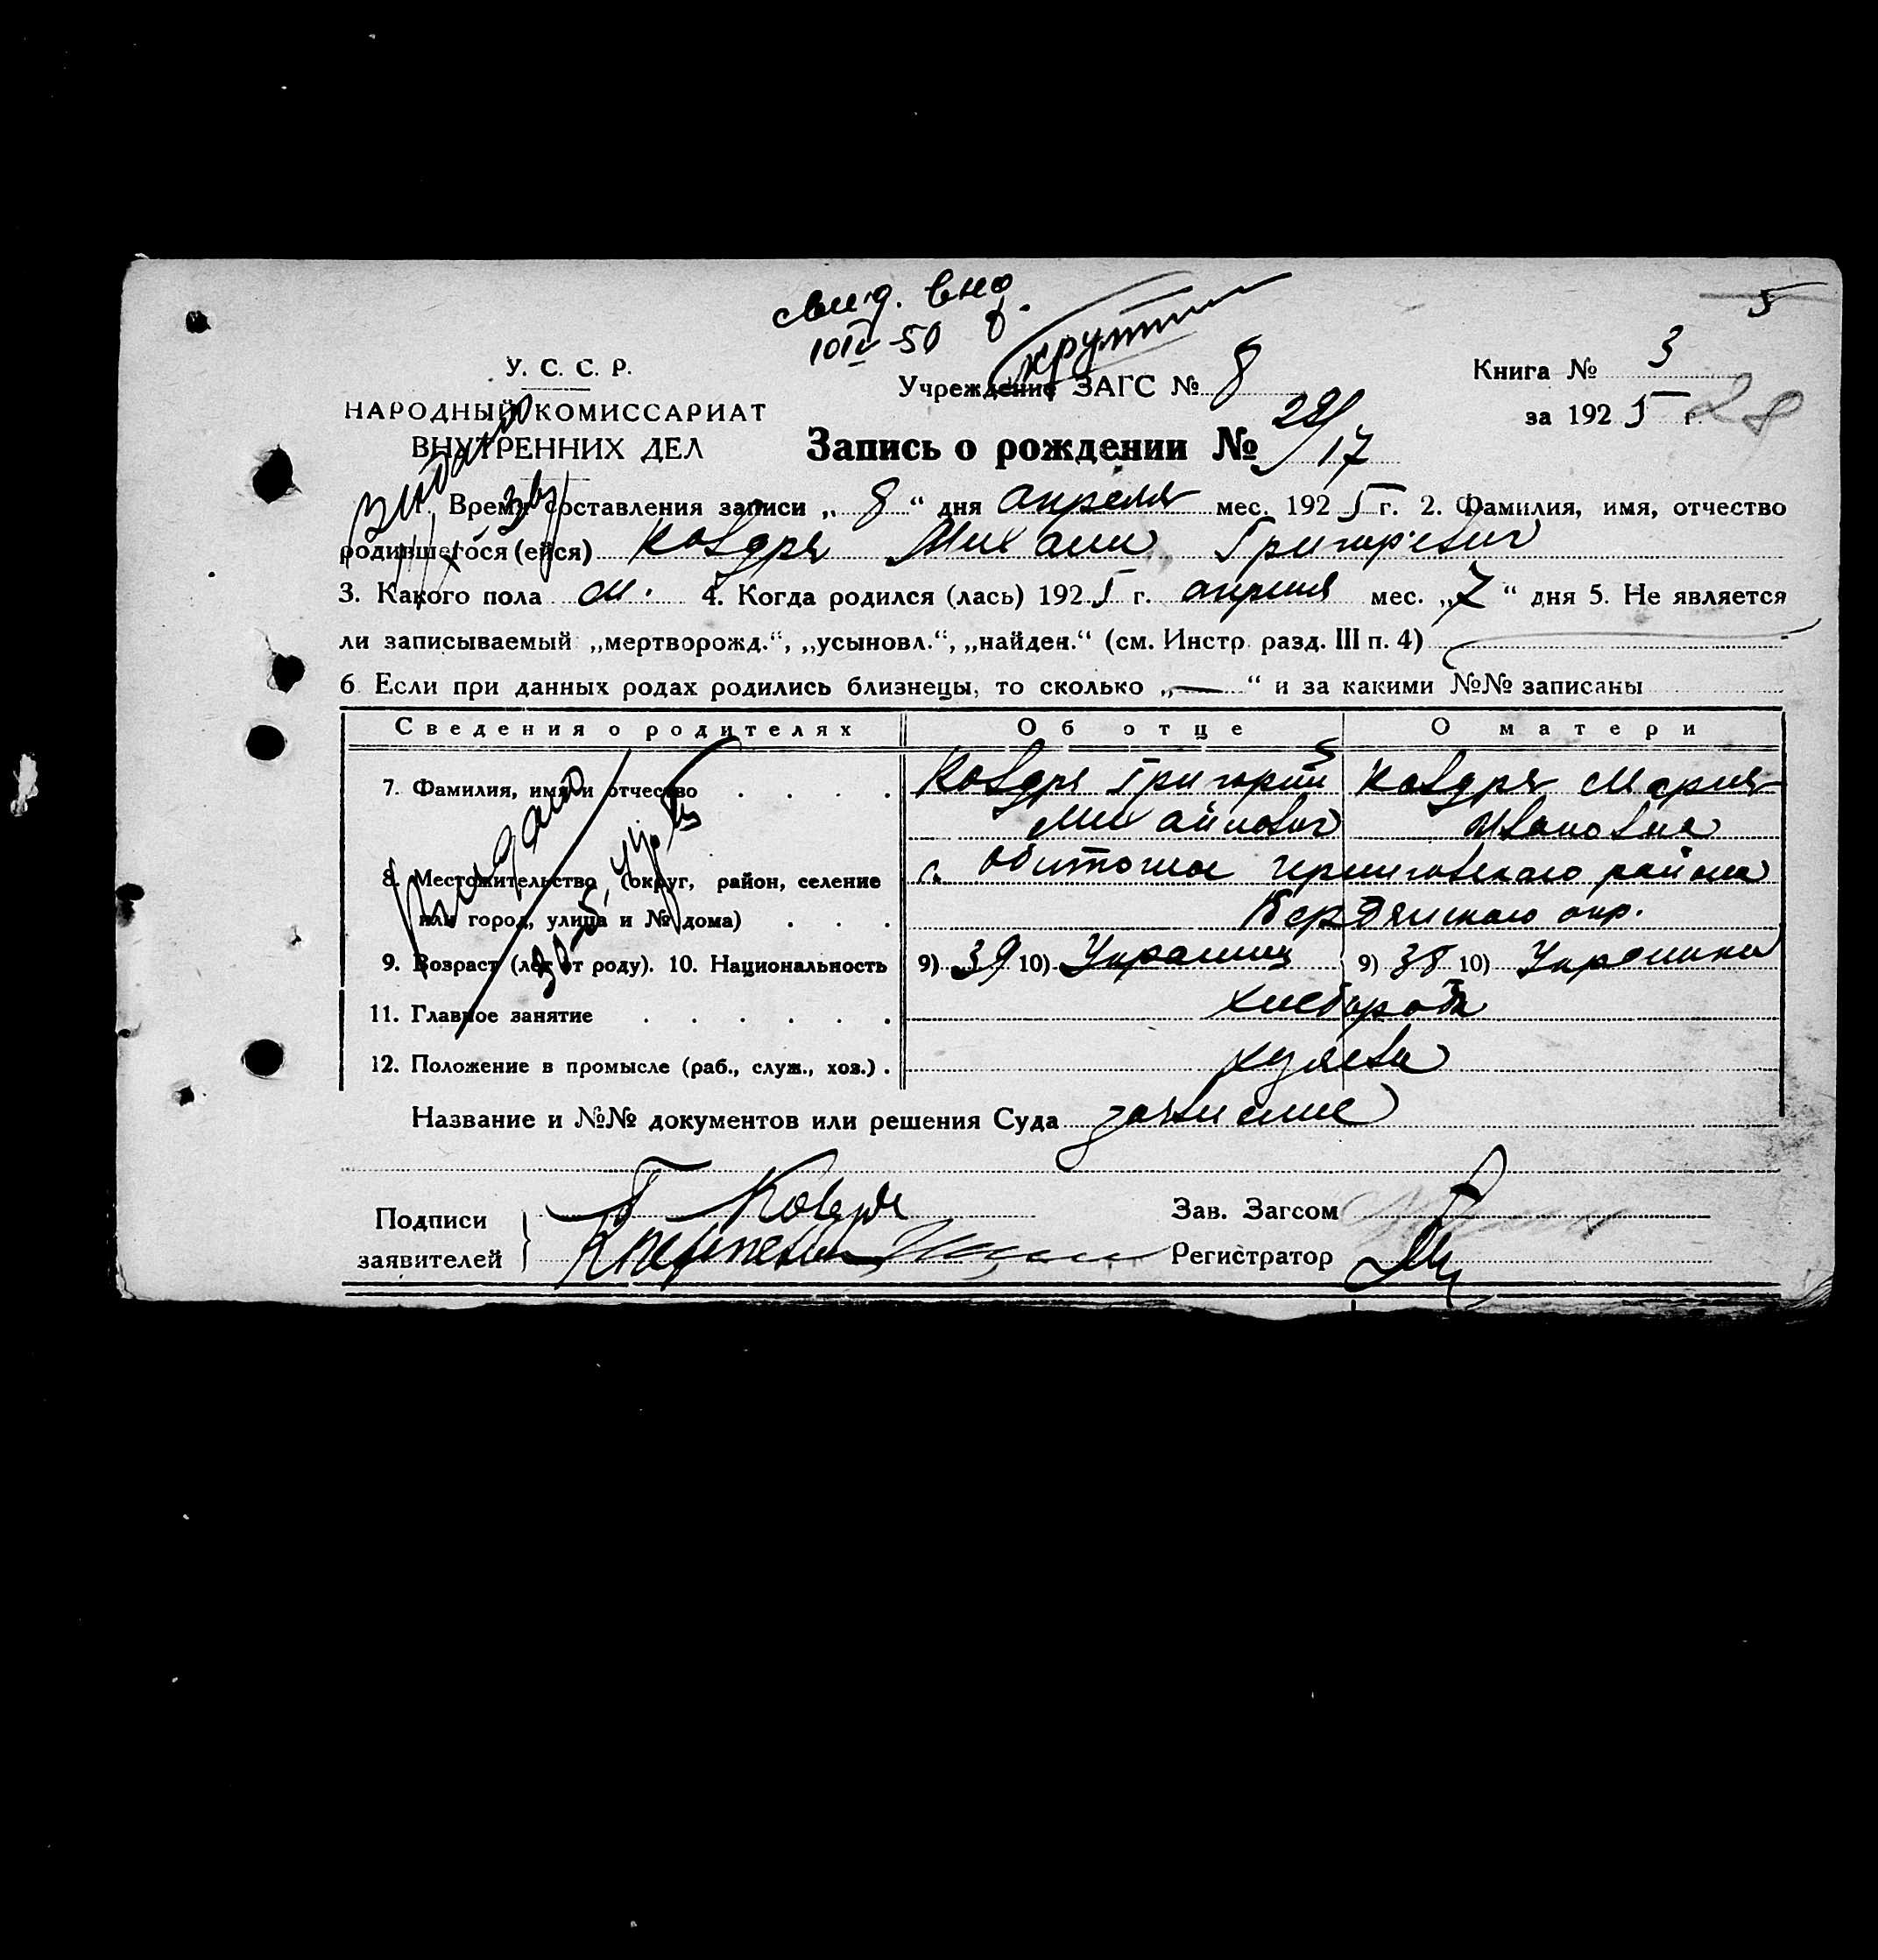 5
свид. вно
10 IV-50
У. С. С. Р.
НАРОДНЫЙ КОМИССАРИАТ
ВНУТРЕННИХ ДЕЛ
Учреждение ЗАГС № 8
Книга № 3
за 1925 г. 28
Запись о рождении № 28/17
1. Время составления записи „8“ дня апреля мес. 1925 г. 2. Фамилия, имя, отчество
родившегося (ейся) Ковдря Михаил Григорьевич
3. Какого пола м. 4. Когда родился (лась) 1925 г. апреля мес. „7“ дня 5. Не является
ли записываемый „мертворожд.“, „усыновл.“, „найден.“ (см. Инстр. разд. III п. 4)
6 Если при данных родах родились близнецы, то сколько „—“ и за какими №№ записаны
Сведения о родителях Об отце О матери
7. Фамилия, имя и отчество . . . . Ковдря Григорий Ковдря Мария
Михайлович Ивановна
8. Местожительство (округ, район, селение с. Обиточное Черниговского района
или город, улица и № дома) . . . Бердянского окр.
9. Возраст (лет от роду). 10. Национальность 9) 39 10) Украинец 9) 38 10) Украинка
11. Главное занятие . . . . . . хлебороб
12. Положение в промысле (раб., служ., хоз.) . хозяева
Название и №№ документов или решения Суда заявление
Подписи
заявителей
Г Ковдря
Зав. Загсом
Регистратор
Выдано